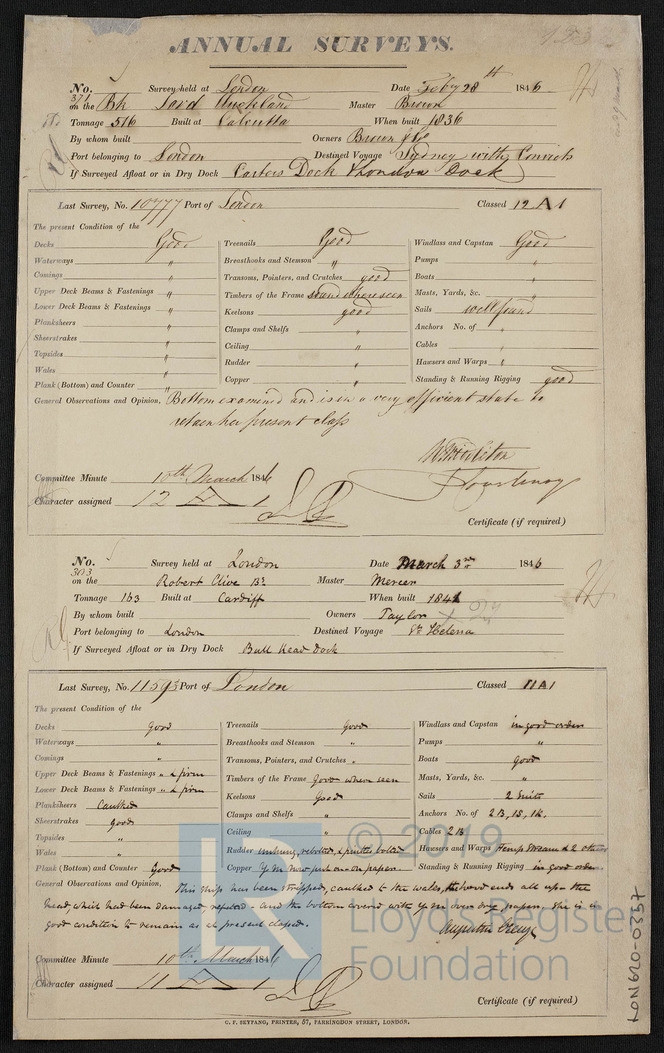 ANNUAL SURVEYS.
No. 371 Survey held at London Date Feby 28th 1846
on the Bk Lord Auckland Master Brown
Tonnage 516 Built at Calcutta When built 1836
By whom built Owners Brown & Co
Port belonging to London Destined Voyage Sydney with Convicts
If Surveyed Afloat or in Dry Dock Carters Dock & London Dock
Last Survey, No. 10777 Port of London Classed 12 A 1
The present Condition of the
Decks Good
Waterways "
Comings "
Upper Deck Beams & Fastenings "
Lower Deck Beams & Fastenings "
Planksheers "
Sheerstrakes "
Topsides "
Wales "
Plank (Bottom) and Counter "
Treenails Good
Breasthooks and Stemson "
Transoms, Pointers, and Crutches good
Timbers of the Frame sound where seen
Keelsons good
Clamps and Shelfs "
Ceiling "
Rudder "
Copper "
Windlass and Capstan Good
Pumps "
Boats "
Masts, Yards, &c. "
Sails well found
Anchors No. of "
Cables "
Hawsers and Warps "
Standing & Running Rigging good
General Observations and Opinion, Bottom examined and is in a very efficient state to
retain her present class
W. Middleton
Courtenay
Committee Minute 10th March 1846
Character assigned 12 A 1
Certificate (if required)
No. 303 Survey held at London Date March 3rd 1846
on the Robert Clive Bk Master Mercer
Tonnage 163 Built at Cardiff When built 1841
By whom built Owners Taylor & Co
Port belonging to London Destined Voyage St Helena
If Surveyed Afloat or in Dry Dock Bull Head Dock
Last Survey, No. 11595 Port of London Classed 11 A 1
The present Condition of the
Decks Good
Waterways "
Comings "
Upper Deck Beams & Fastenings " & firm
Lower Deck Beams & Fastenings " & firm
Planksheers Caulked
Sheerstrakes good
Topsides "
Wales "
Plank (Bottom) and Counter Good
Treenails Good
Breasthooks and Stemson "
Transoms, Pointers, and Crutches "
Timbers of the Frame Good where seen
Keelsons Good
Clamps and Shelfs "
Ceiling "
Rudder unhung, rebolted, & bolted
Copper Y.M. now put on on paper
Windlass and Capstan in good order
Pumps "
Boats Good
Masts, Yards, &c. "
Sails 2 Suits
Anchors No. of 2B, 1S, 1K.
Cables 2B
Hawsers and Warps Hemp Stream & 2 others
Standing & Running Rigging in good order
General Observations and Opinion, This ship has been stripped, caulked to the wales, the wood ends all upon the
head, which had been damaged, repaired, and the bottom covered with Y.M. over dry paper. She is in
good condition to remain as at present classed.
Augustin Creuze
Committee Minute 10th March 1846
Character assigned 11 A 1
Certificate (if required)
C. F. SEYFANG, PRINTER, 57, FARRINGDON STREET, LONDON.
LON620-0357
LR
© 2019
Lloyd's Register
Foundation